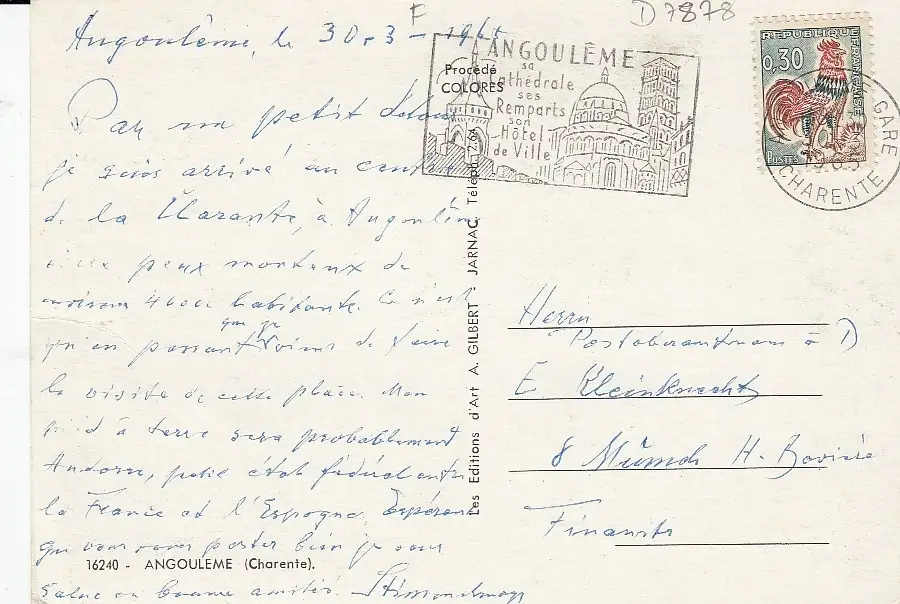 F
D 7878
Angoulême, le 30.3-
ANGOULÊME
sa
Cathédrale
ses
Remparts
son
Hôtel
de Ville
REPUBLIQUE FRANÇAISE
0,30
POSTES
GARE
CHARENTE
Procédé
COLORES
Par un petit détour
je suis arrivé au centre
de la Charante, à Angoulême
peux montaux de
environ 46000 habitante. Ce n'est
que je
qu'en passant viens de faire
la visite de cette place. Mon
pied à terre sera probablement
Andorre, petit état fédéral entre
la France et l'Espagne. Espérant
que vous vous porter bien je vous
salue en bonne amitié.
16240 - ANGOULEME (Charente).
Les Editions d'Art A. GILBERT - JARNAC. Téléph. 2.64
Herrn
Postoberamtmann a D
E. Kleinknecht
8 München H. Bavière